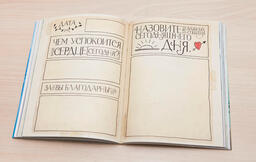 ДАТА
ЧЕМ УСПОКОИТСЯ
СЕРДЦЕ СЕГОДНЯ?
ЗА ЧТО ВЫ БЛАГОДАРНЫ
НАЗОВИТЕ
СОБЫТИЯ
СЕГОДНЯШНЕГО
ДНЯ.